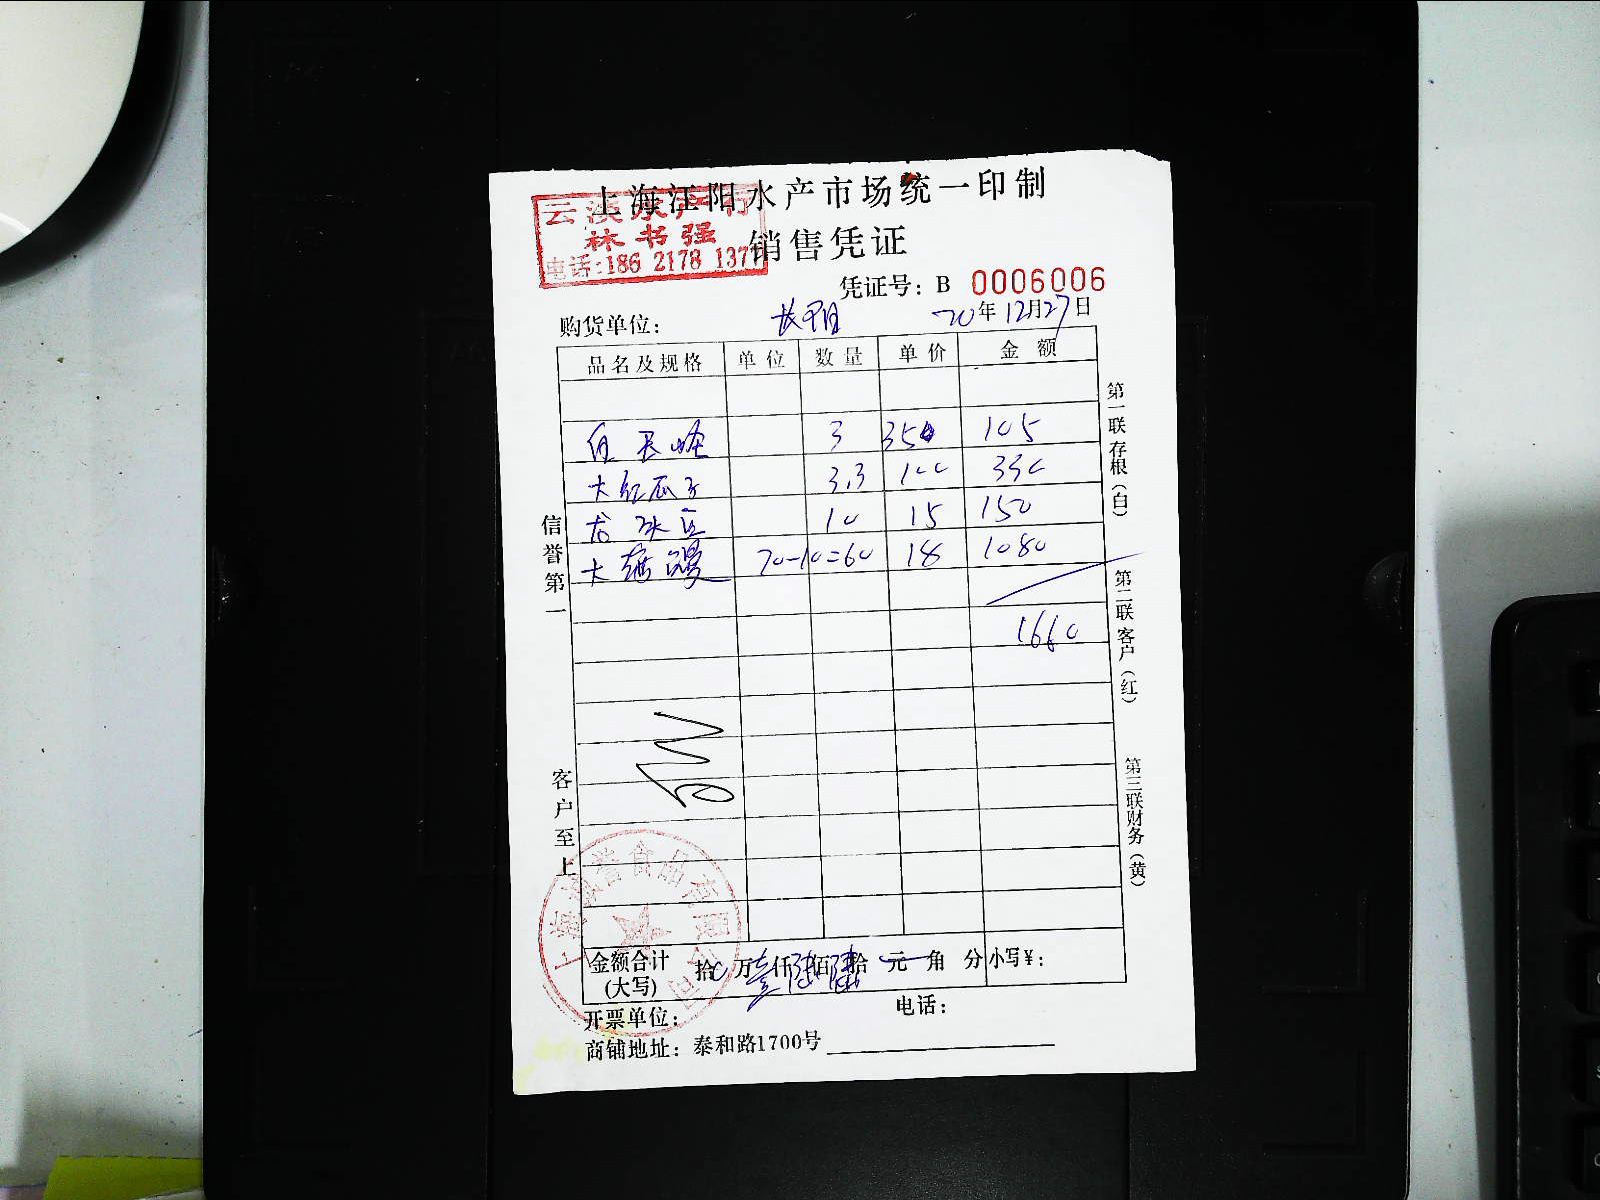 上海江阳水产市场统一印制
云淡水产行
林书强
电话:186 2178 1377
销售凭证
凭证号: B 0006006
购货单位: 长阳 20年12月27日
品名及规格 单位 数量 单价 金额
3 35 105
大红瓜子 3.3 100 330
10 15 150
大 70-10=60 18 1080
1660
信誉第一
客户至上
第一联存根(白)
第二联客户(红)
第三联财务(黄)
金额合计(大写) 拾 万壹仟陆佰陆拾元角分 小写¥:
开票单位: 电话:
商铺地址: 泰和路1700号